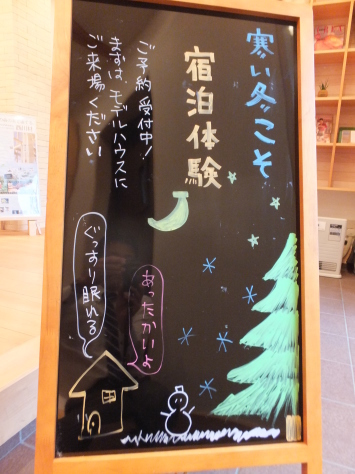 寒い冬こそ
宿泊体験
ご予約受付中!
まずは、モデルハウスに
ご来場ください
あったかいよ
ぐっすり眠れる